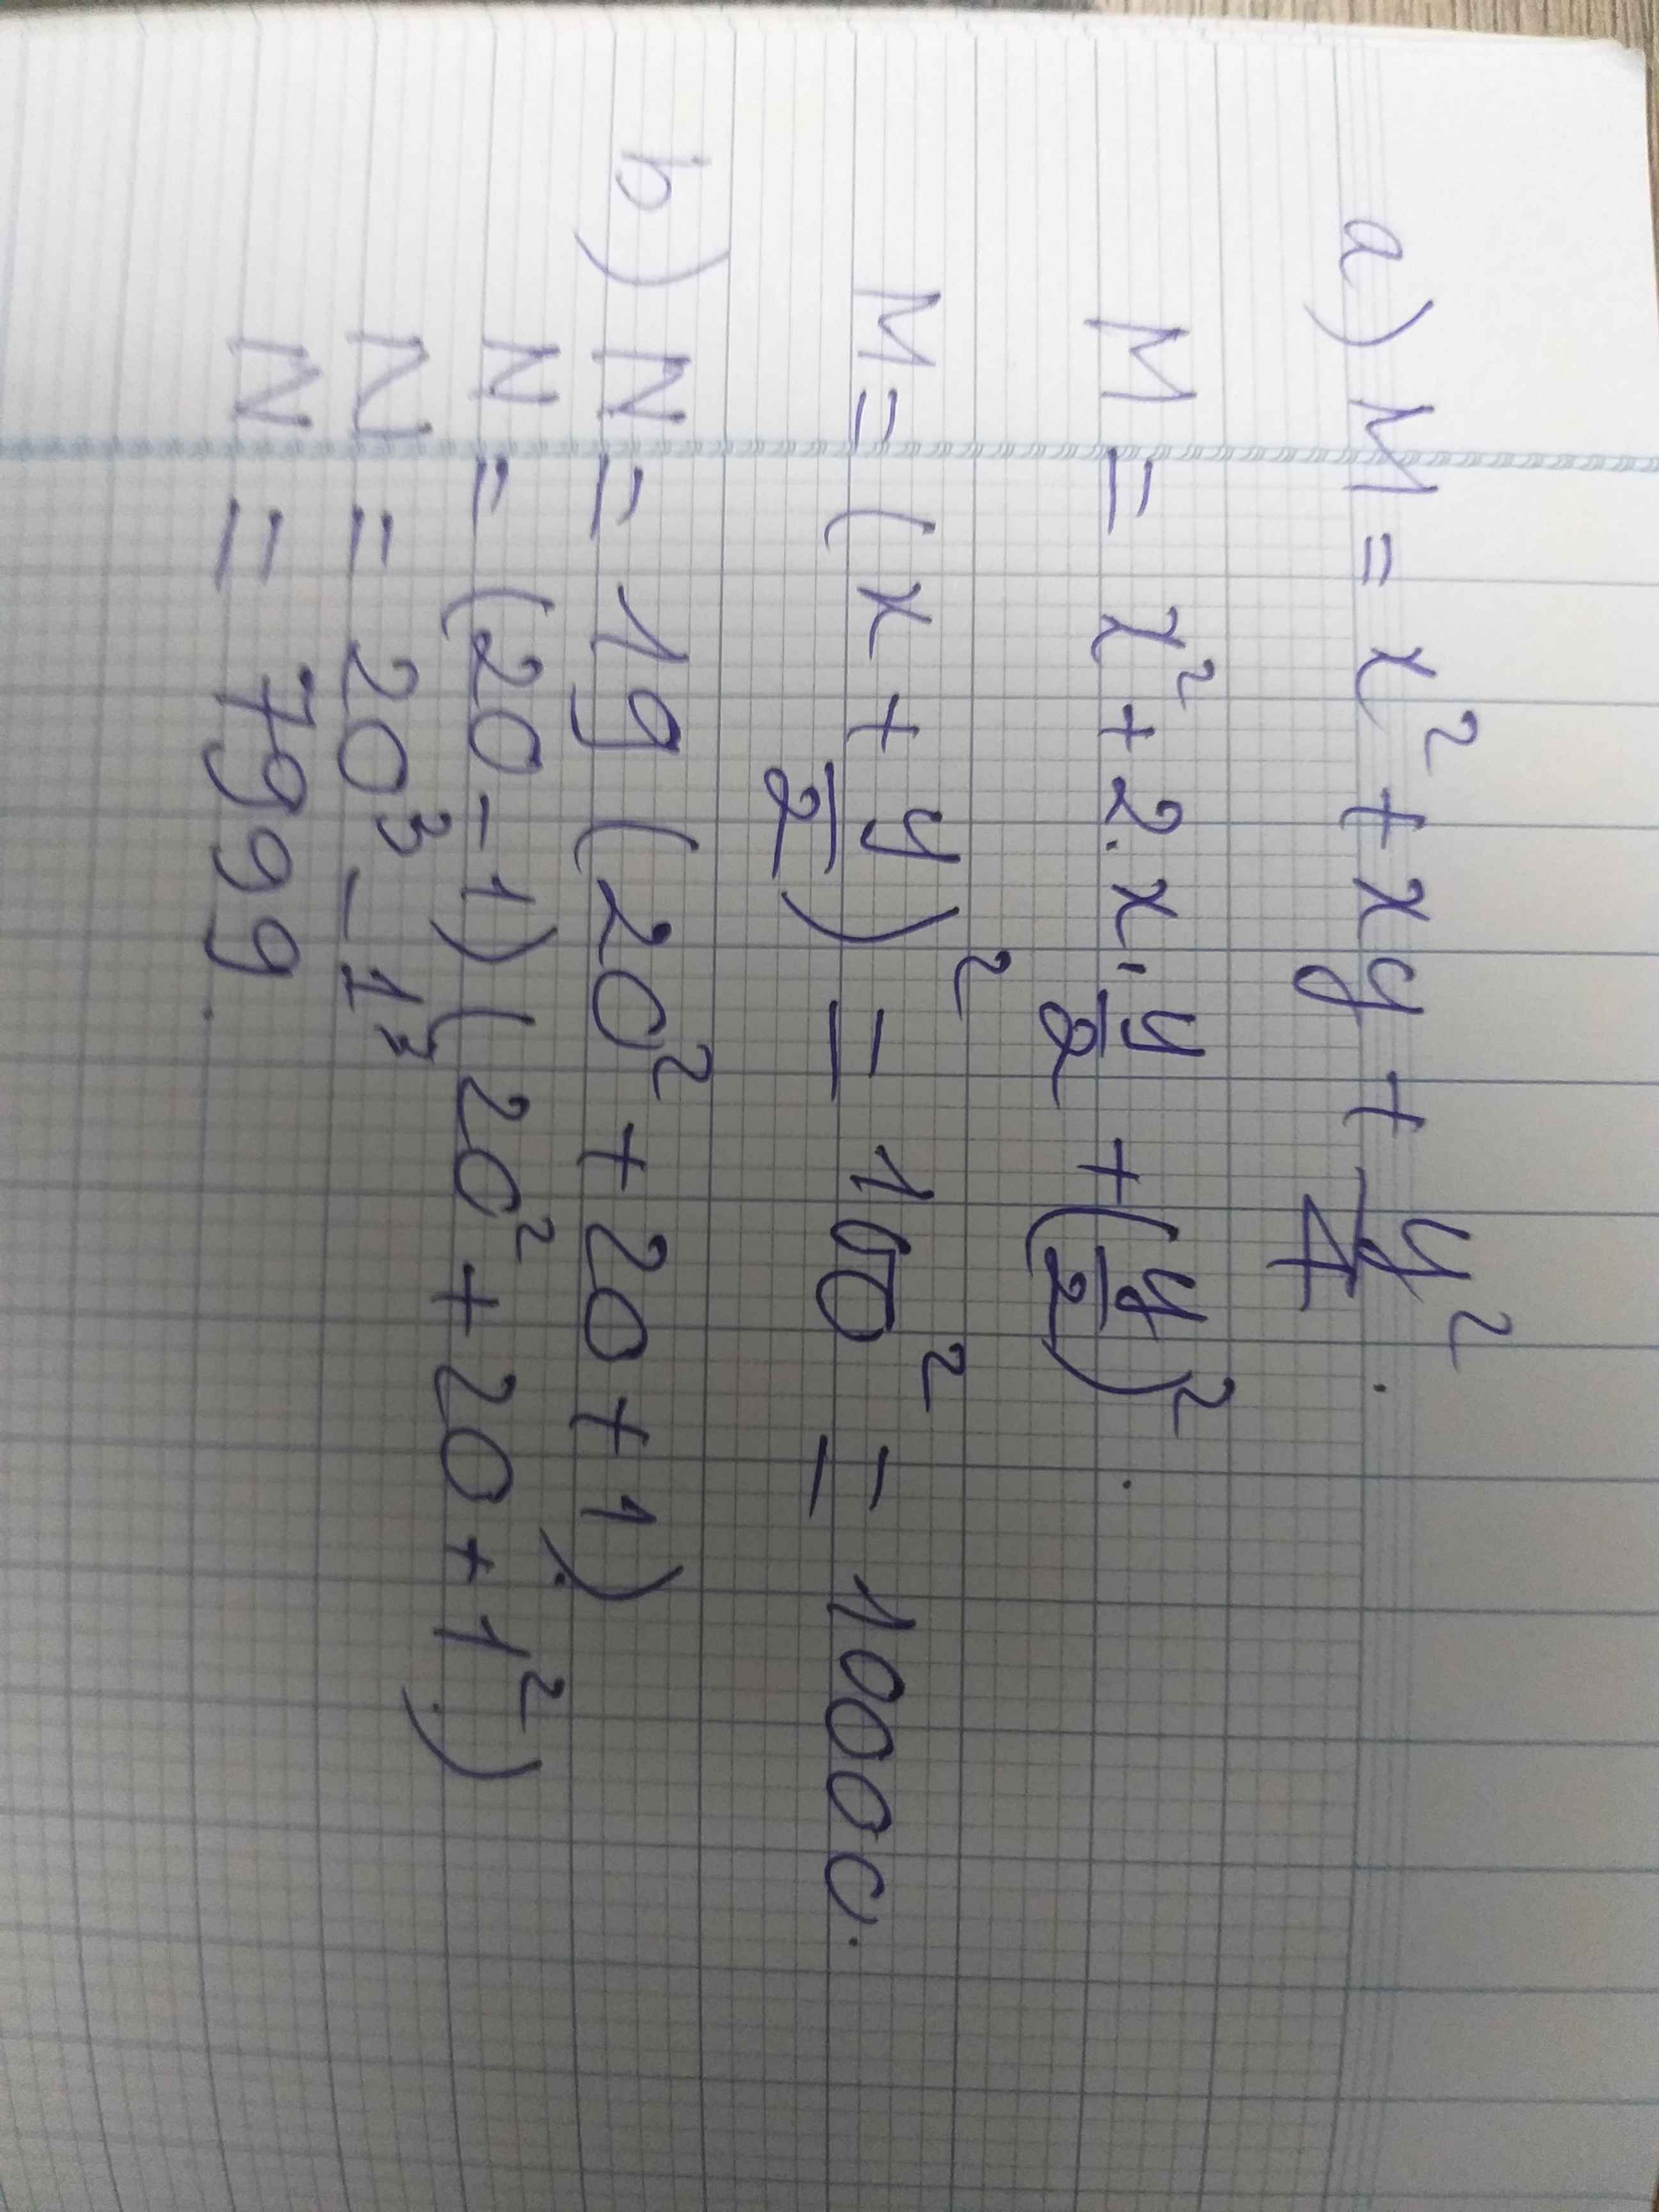 a) M = x² + xy + y²/4.
M = x² + 2.x.y/2 + (y/2)².
M = (x + y/2)² = 100² = 10000.
b) N = 19 (20² + 20 + 1)
N = (20 - 1) (20² + 20 + 1²)
N = 20³ - 1³
N = 7999.